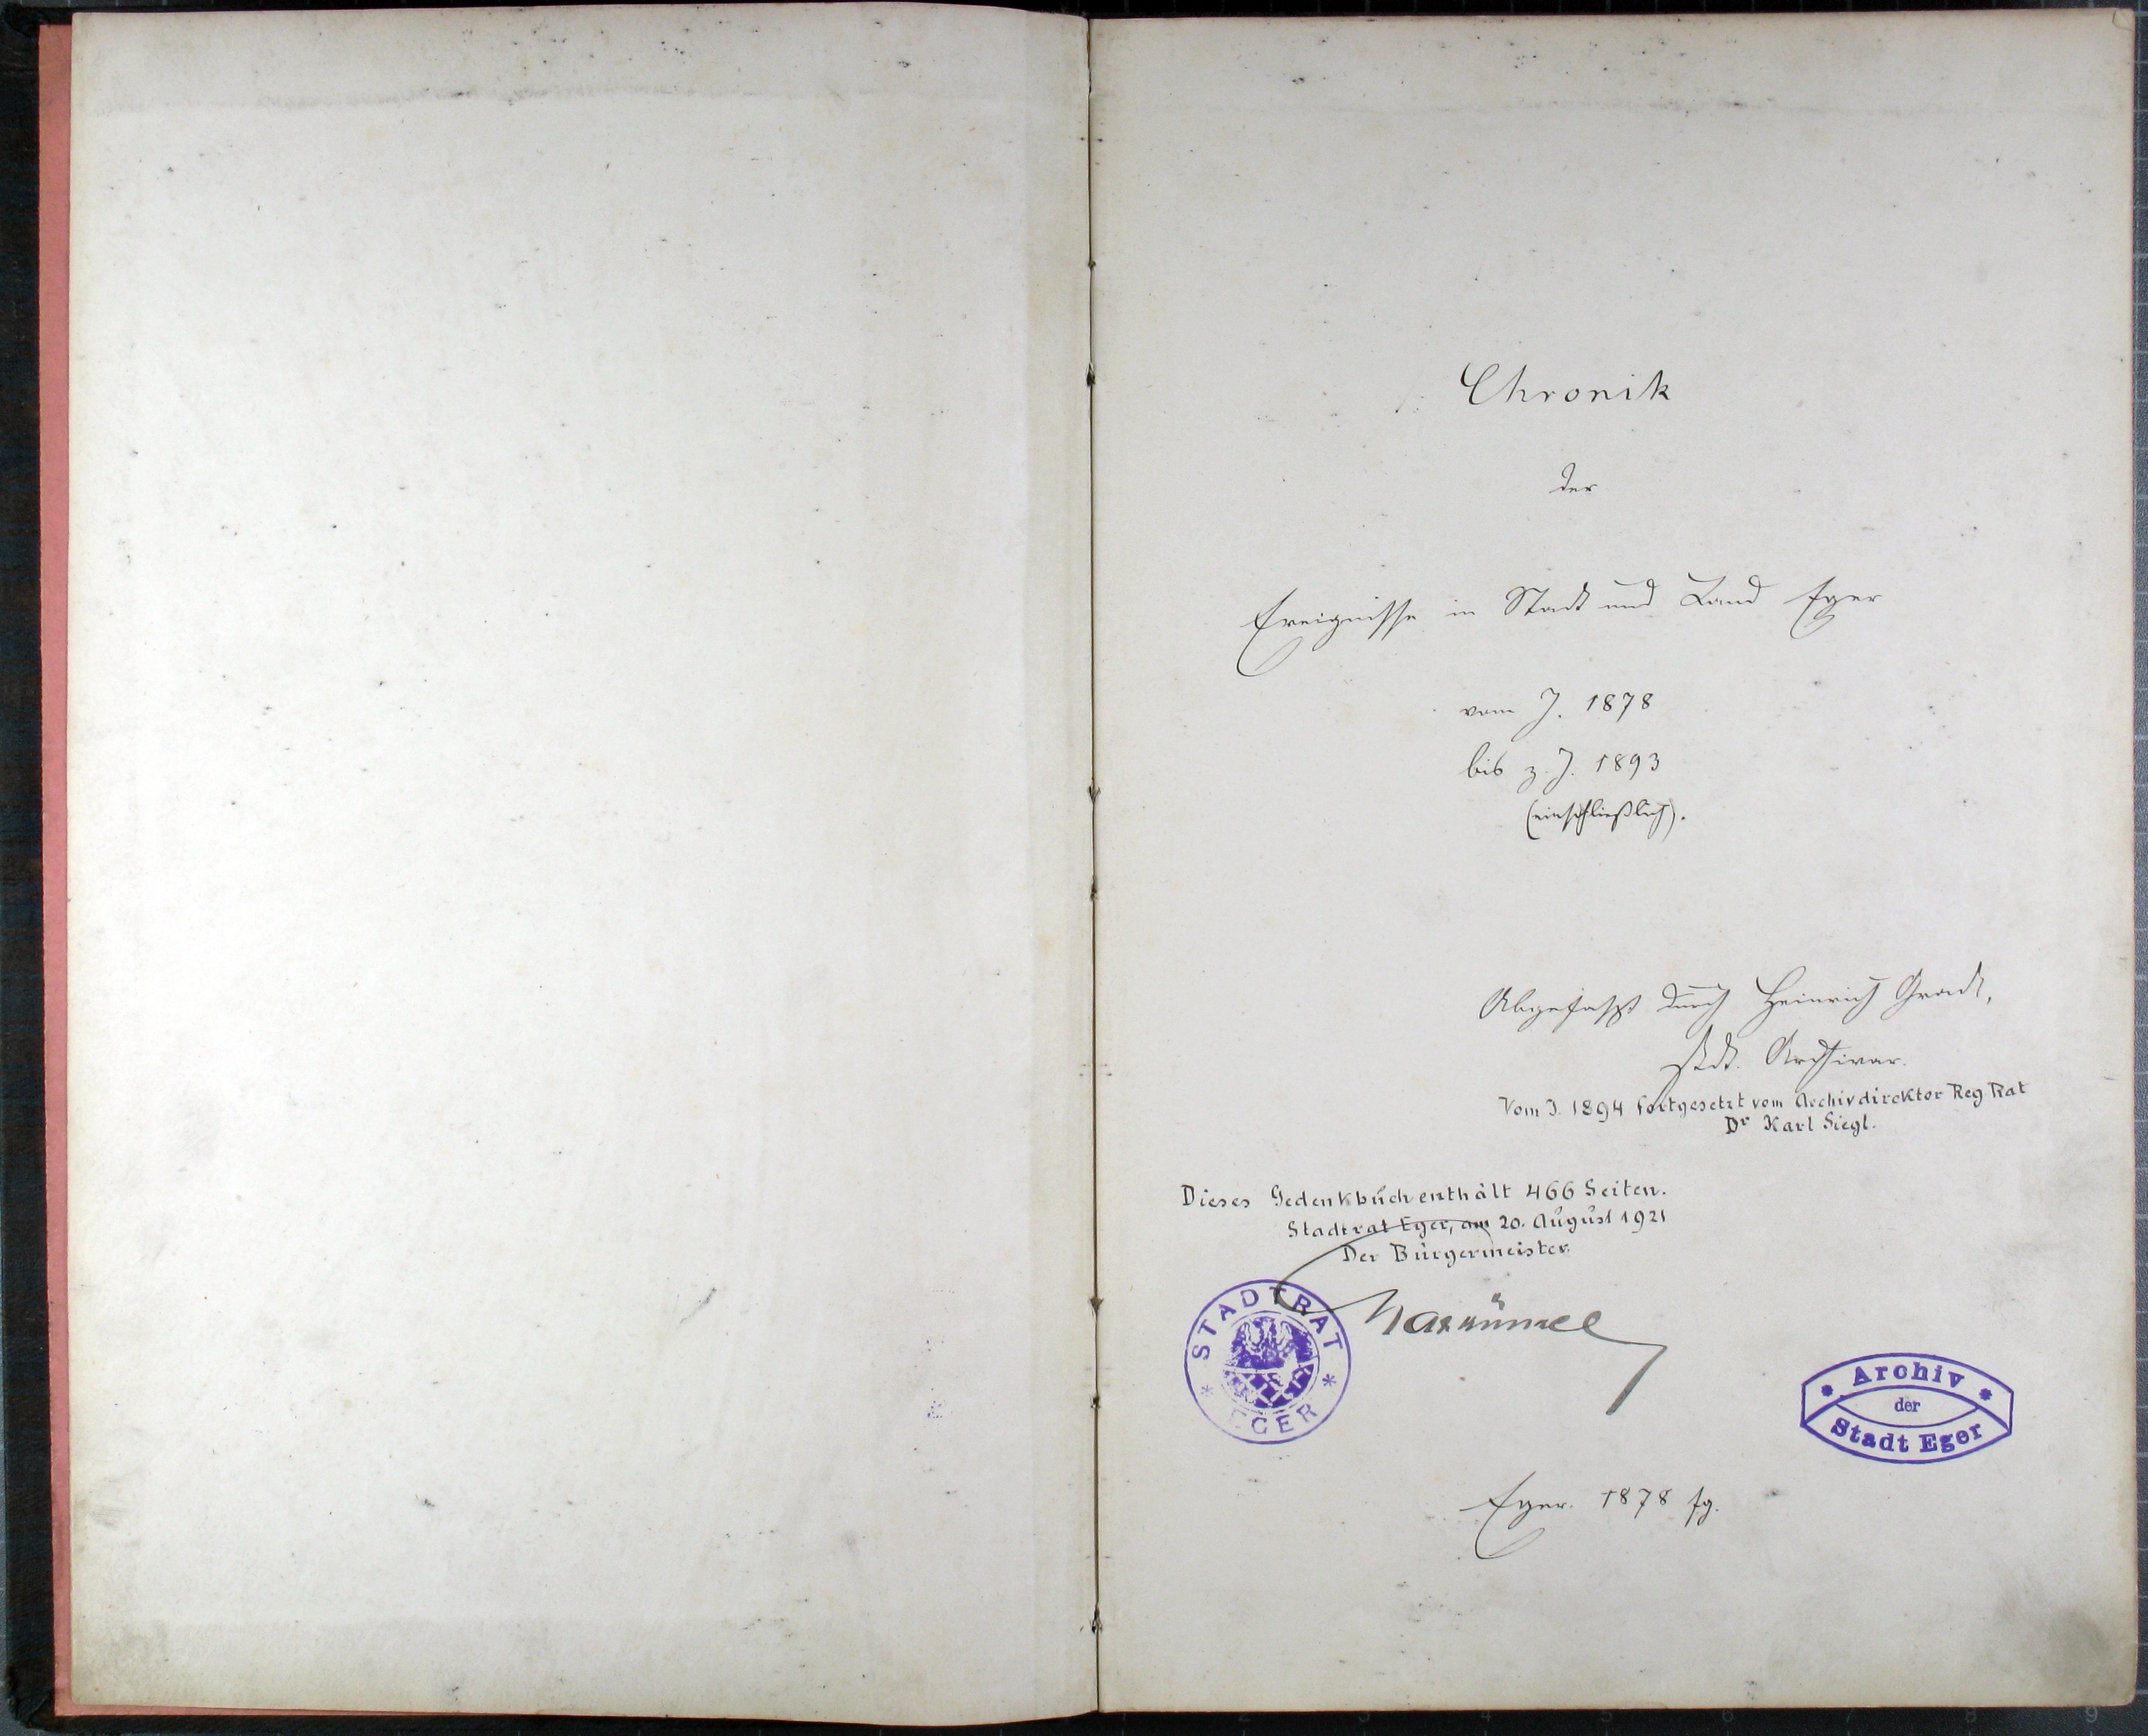 Chronik
der
Ereignisse in Stadt und Land Eger
vom J. 1878
bis z. J. 1893
(einschließlich).
Abgefasst durch Heinrich Gradl,
städt. Archivar.
Vom J. 1894 fortgesetzt vom Archivdirektor Reg Rat
Dr Karl Siegl.
Dieses Gedenkbuch enthält 466 Seiten.
Stadtrat Eger, am 20. August 1921
Der Bürgermeister.
STADTRAT
* EGER *
Archiv
der
Stadt Eger
Eger. 1878 fg.